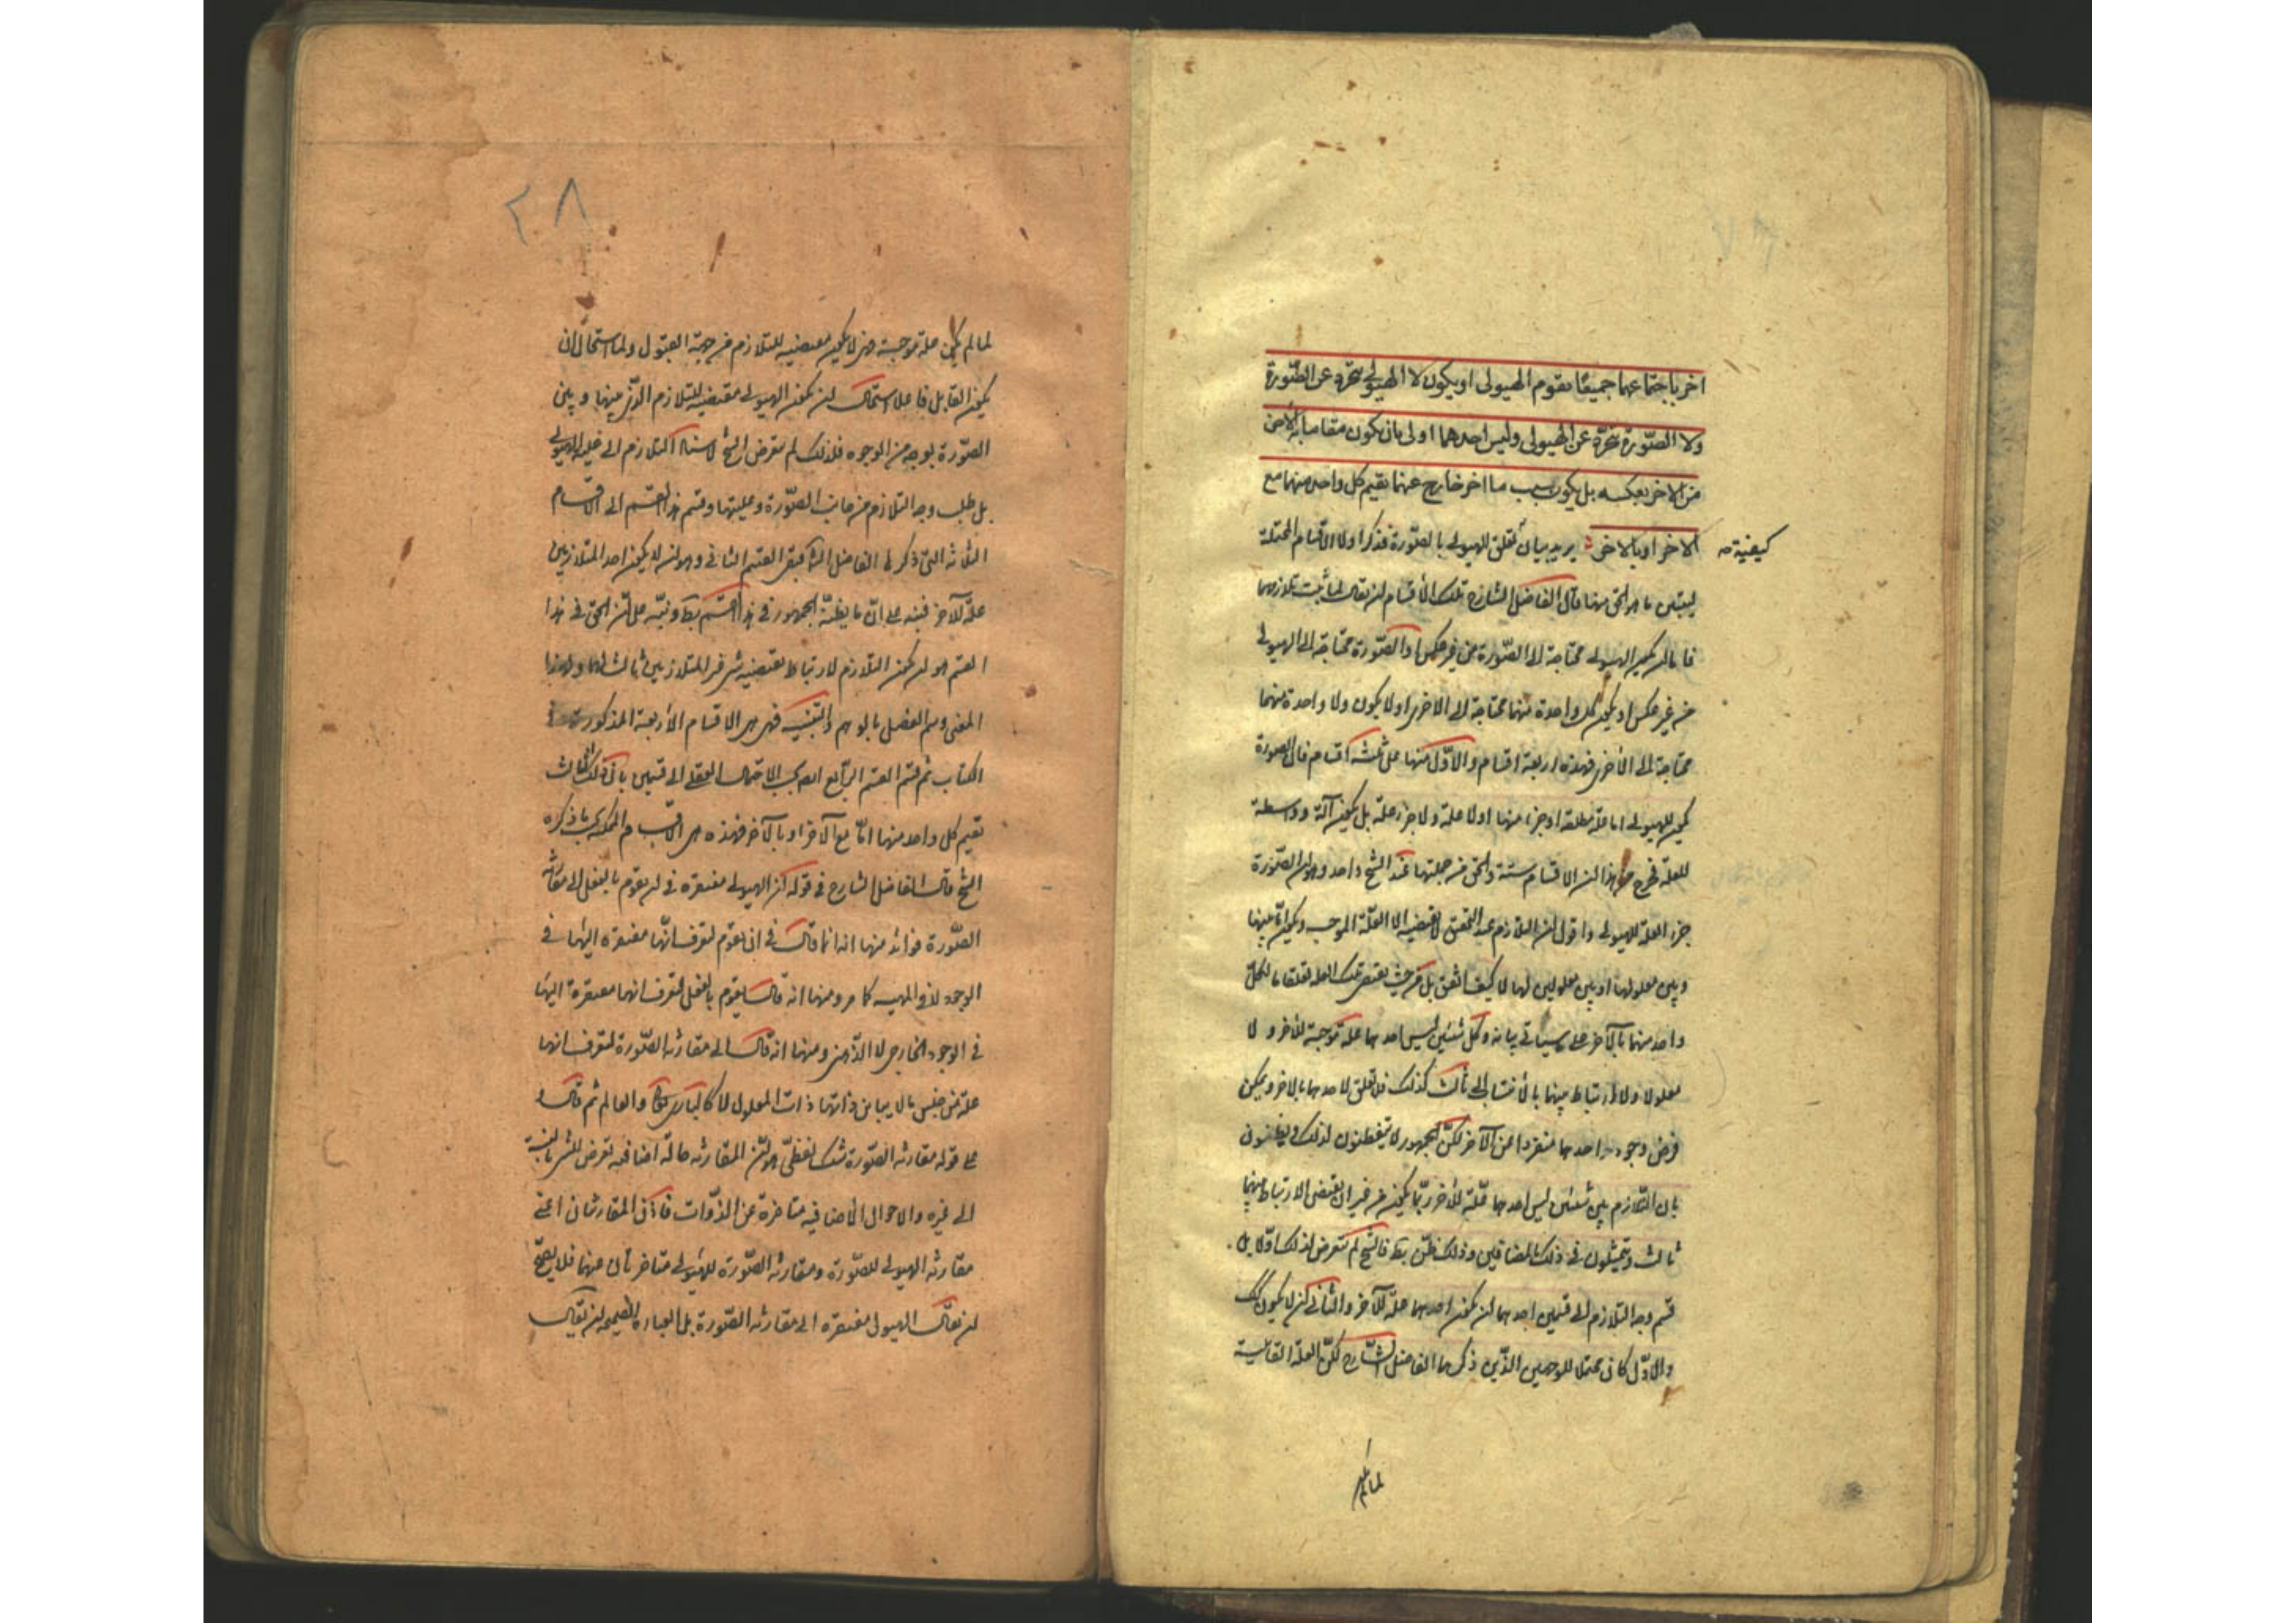 اخر باجتماعهما جميعًا تقوم الهيولى او يكون لا الهيولى تتجرد عن الصورة
ولا الصّورة تتجرّد عن الهيولى وليس احدهما اولى بان يكون مقاما به الاخر
من الاخر بعكسه بل يكون سبب ما اخر خارج عنهما يقيم كل واحد منهما مع
الاخر او بالاخر يريد بيان تعلق الهيولى بالصّورة فذكر اولا الاقسام المحتملة
كيفية صه
ليتبين ما هو الحق منها قال الفاضل الشارح تلك الأقسام ان يقال لما ثبت تلازمهما
فاما ان يكون الهيولى محتاجة الى الصّورة من غير عكس او الصّورة محتاجة الى الهيولى
من غير عكس او يكون كل واحدة منهما محتاجة الى الاخرى او لا يكون ولا واحدة منهما
محتاجة الى الأخرى فهذه اربعة اقسام والاوّل منها على ثلثة اقسام فان الصورة
يكون للهيولى اما علة مطلقة او جزء منها او لا علة ولا جزء علة بل يكون آلة وواسطة
للعلة فخرج من هذا ان الاقسام ستة والحق من جملتها عند الشيخ واحد وهو ان الصّورة
جزء العلة للهيولى واقول ان التلازم عند التحقيق لا يقتضيه الا العلّة الموجبة ويكون اما بينها
وبين معلولها او بين معلولين لها لا كيف اتفق بل من حيث يقتضى تلك العلة تعلقا ما لكل
واحد منهما بالآخر على ما سيأتى بيانه وكل شيئين ليس احدهما علة موجبة للاخر ولا
معلولا ولا ارتباط بينهما بالأنتساب الى ثالث كذلك فلا تعلق لاحدهما بالاخر ويمكن
فرض وجود احدهما منفردا عن الآخر لكن الجمهور لا يتفطنون لذلك ويظنون
بان التّلازم بين شيئين ليس احدهما علّة للأخر ربّما يكون من غير ان يقتضى الارتباط بينهما
ثالث ويتمثلون فى ذلك بالمضافين وذلك ظن بط فالشيخ لم يتعرض لذلك اوّلا بل
قسم وجه التلازم الى قسمين احدهما ان يكون احدهما علّة للآخر والثانى ان لا يكون كك
والاوّل كان محتملا للوجهين الذّين ذكرهما الفاضل الشّارح لكن العلة القابلية
لما لم يكن
٢٨
لما لم يكن علة موجبة من لا يكون مقتضية للتلازم من جهة القبول ولما استحال ان
يكون القابل فاعلا استحال ان يكون الهيولى مقتضية للتلازم الّذى بينها وبين
الصّورة بوجه من الوجوه فلذلك لم يتعرض الشيخ لاسناد التلازم الى علية الهيولى
بل طلب وجه التلازم من جانب الصّورة وعليتها وقسم هذا القسم الى الاقسام
الثلاثة التى ذكرها الفاضل الشارح فبقى القسم الثانى وهو ان لا يكون احد المتلازمين
علّة للآخر فنبه على انّ ما يظنّه الجمهور فى هذا القسم بط ونبّه على انّ الحق فى هذا
القسم هو ان يكون التلازم لارتباط يقتضيه شىء غير المتلازمين ثالث لهما ولهذا
المعنى وسم الفصل بالوهم والتنبيه فهى هى الاقسام الأربعة المذكورة فى
الكتاب ثم قسم القسم الرّابع ايضا بحسب الاحتمال العقلى الى قسمين بان ذلك الثالث
يقيم كل واحد منهما امّا مع الآخر او بالآخر فهذه هى الاقسام الممكنة بحسب ما ذكره
الشيخ قال الفاضل الشارح فى قوله ان الهيولى مفتقرة فى ان يقوم بالفعل الى مقارنة
الصّورة فوائد منها انه انما قال فى ان يقوم لتعرف انّها مفتقرة اليها فى
الوجود لا فى المهية كما مر ومنها انه قال يقوم بالفعل لتعرف انها مفتقرة اليها
فى الوجود الخارجى لا الذّهنى ومنها انه قال الى مقارنة الصّورة لتعرف انها
علة من جنس ما لا يباين ذاتها ذات المعلول لا كالبارى تعالى والعالم ثم قال و
على قوله مقارنة الصّورة شك لفظىّ هو انّ المقارنة حالة اضافية تعرض للشىء بالنسبة
الى غيره والاحوال الاضافية متأخرة عن الذّوات فاذن المقارنتان اعنى
مقارنة الهيولى للصّورة ومقارنة الصّورة للهيولى متأخرتان عنهما فلا يصحّ
ان يقال الهيولى مفتقرة الى مقارنة الصّورة بل العبارة الصحيحة ان يقال